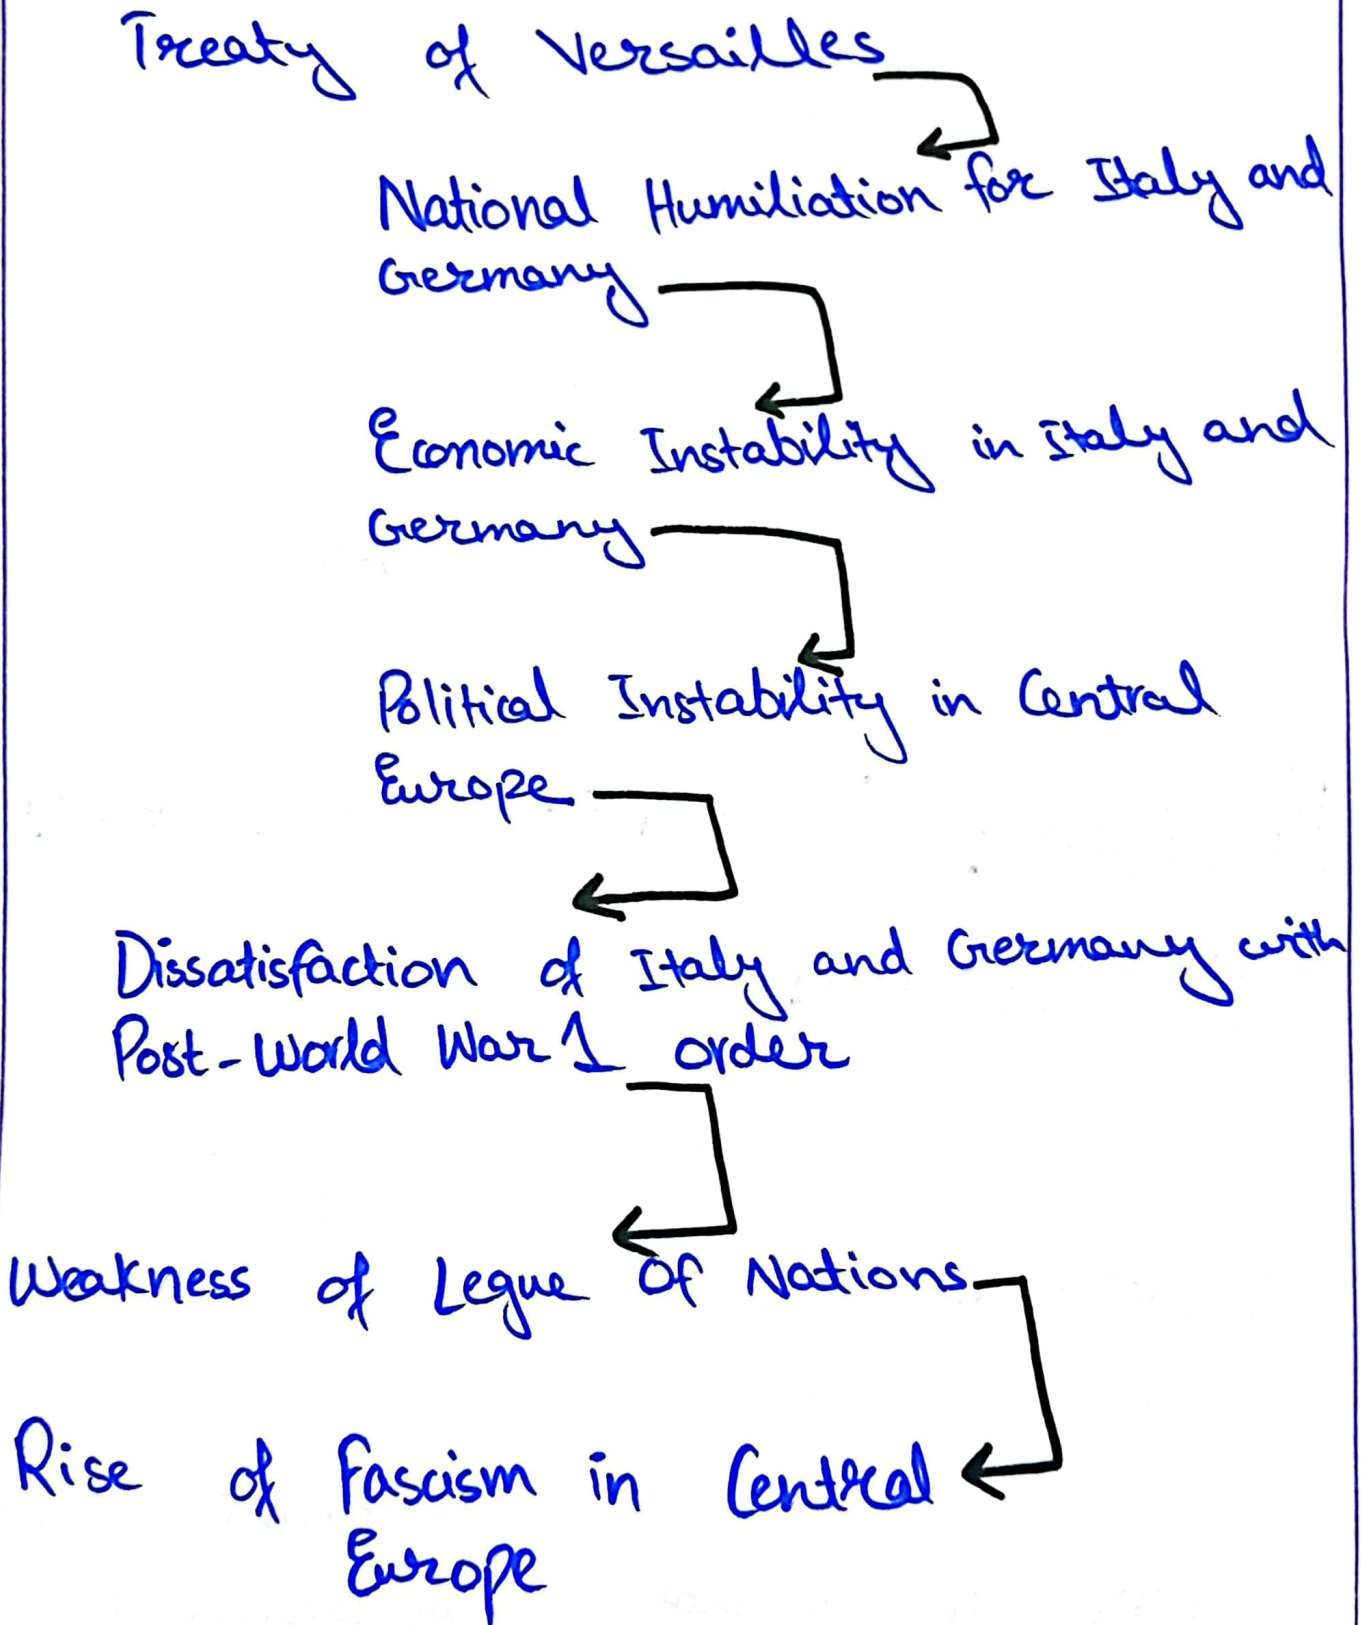 Treaty of Versailles
National Humiliation for Italy and
Germany
Economic Instability in Italy and
Germany
Political Instability in Central
Europe
Dissatisfaction of Italy and Germany with
Post-World War 1 order
Weakness of Legue Of Nations
Rise of Fascism in Central
Europe